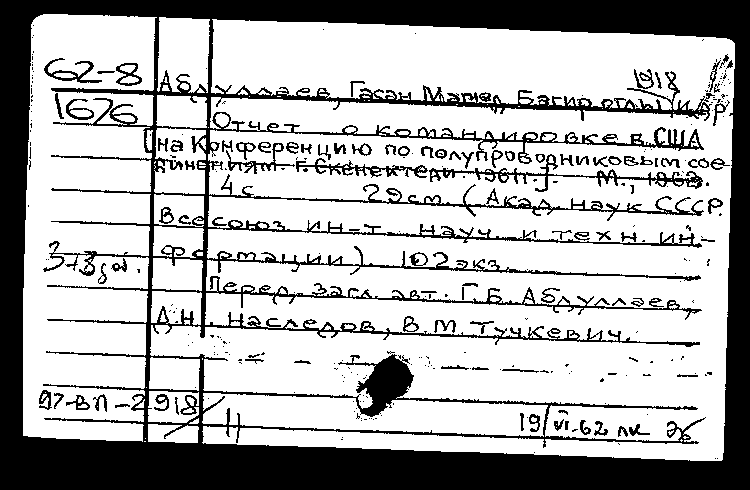 62-8
1676
1918
Абдуллаев, Гасан Мамед Багир оглы и др.
Отчет о командировке в США
[на Конференцию по полупроводниковым сое-
динениям. г. Скенектеди. 1961г.]. М., 1962.
4с 29см. (Акад. наук СССР.
Всесоюз. ин-т науч. и техн. ин-
формации). 102 экз.
Перед. загл. авт.: Г.Б. Абдуллаев,
Д.Н. Наследов, В.М. Тучкевич.
97-ВП-2918
19/VI-62